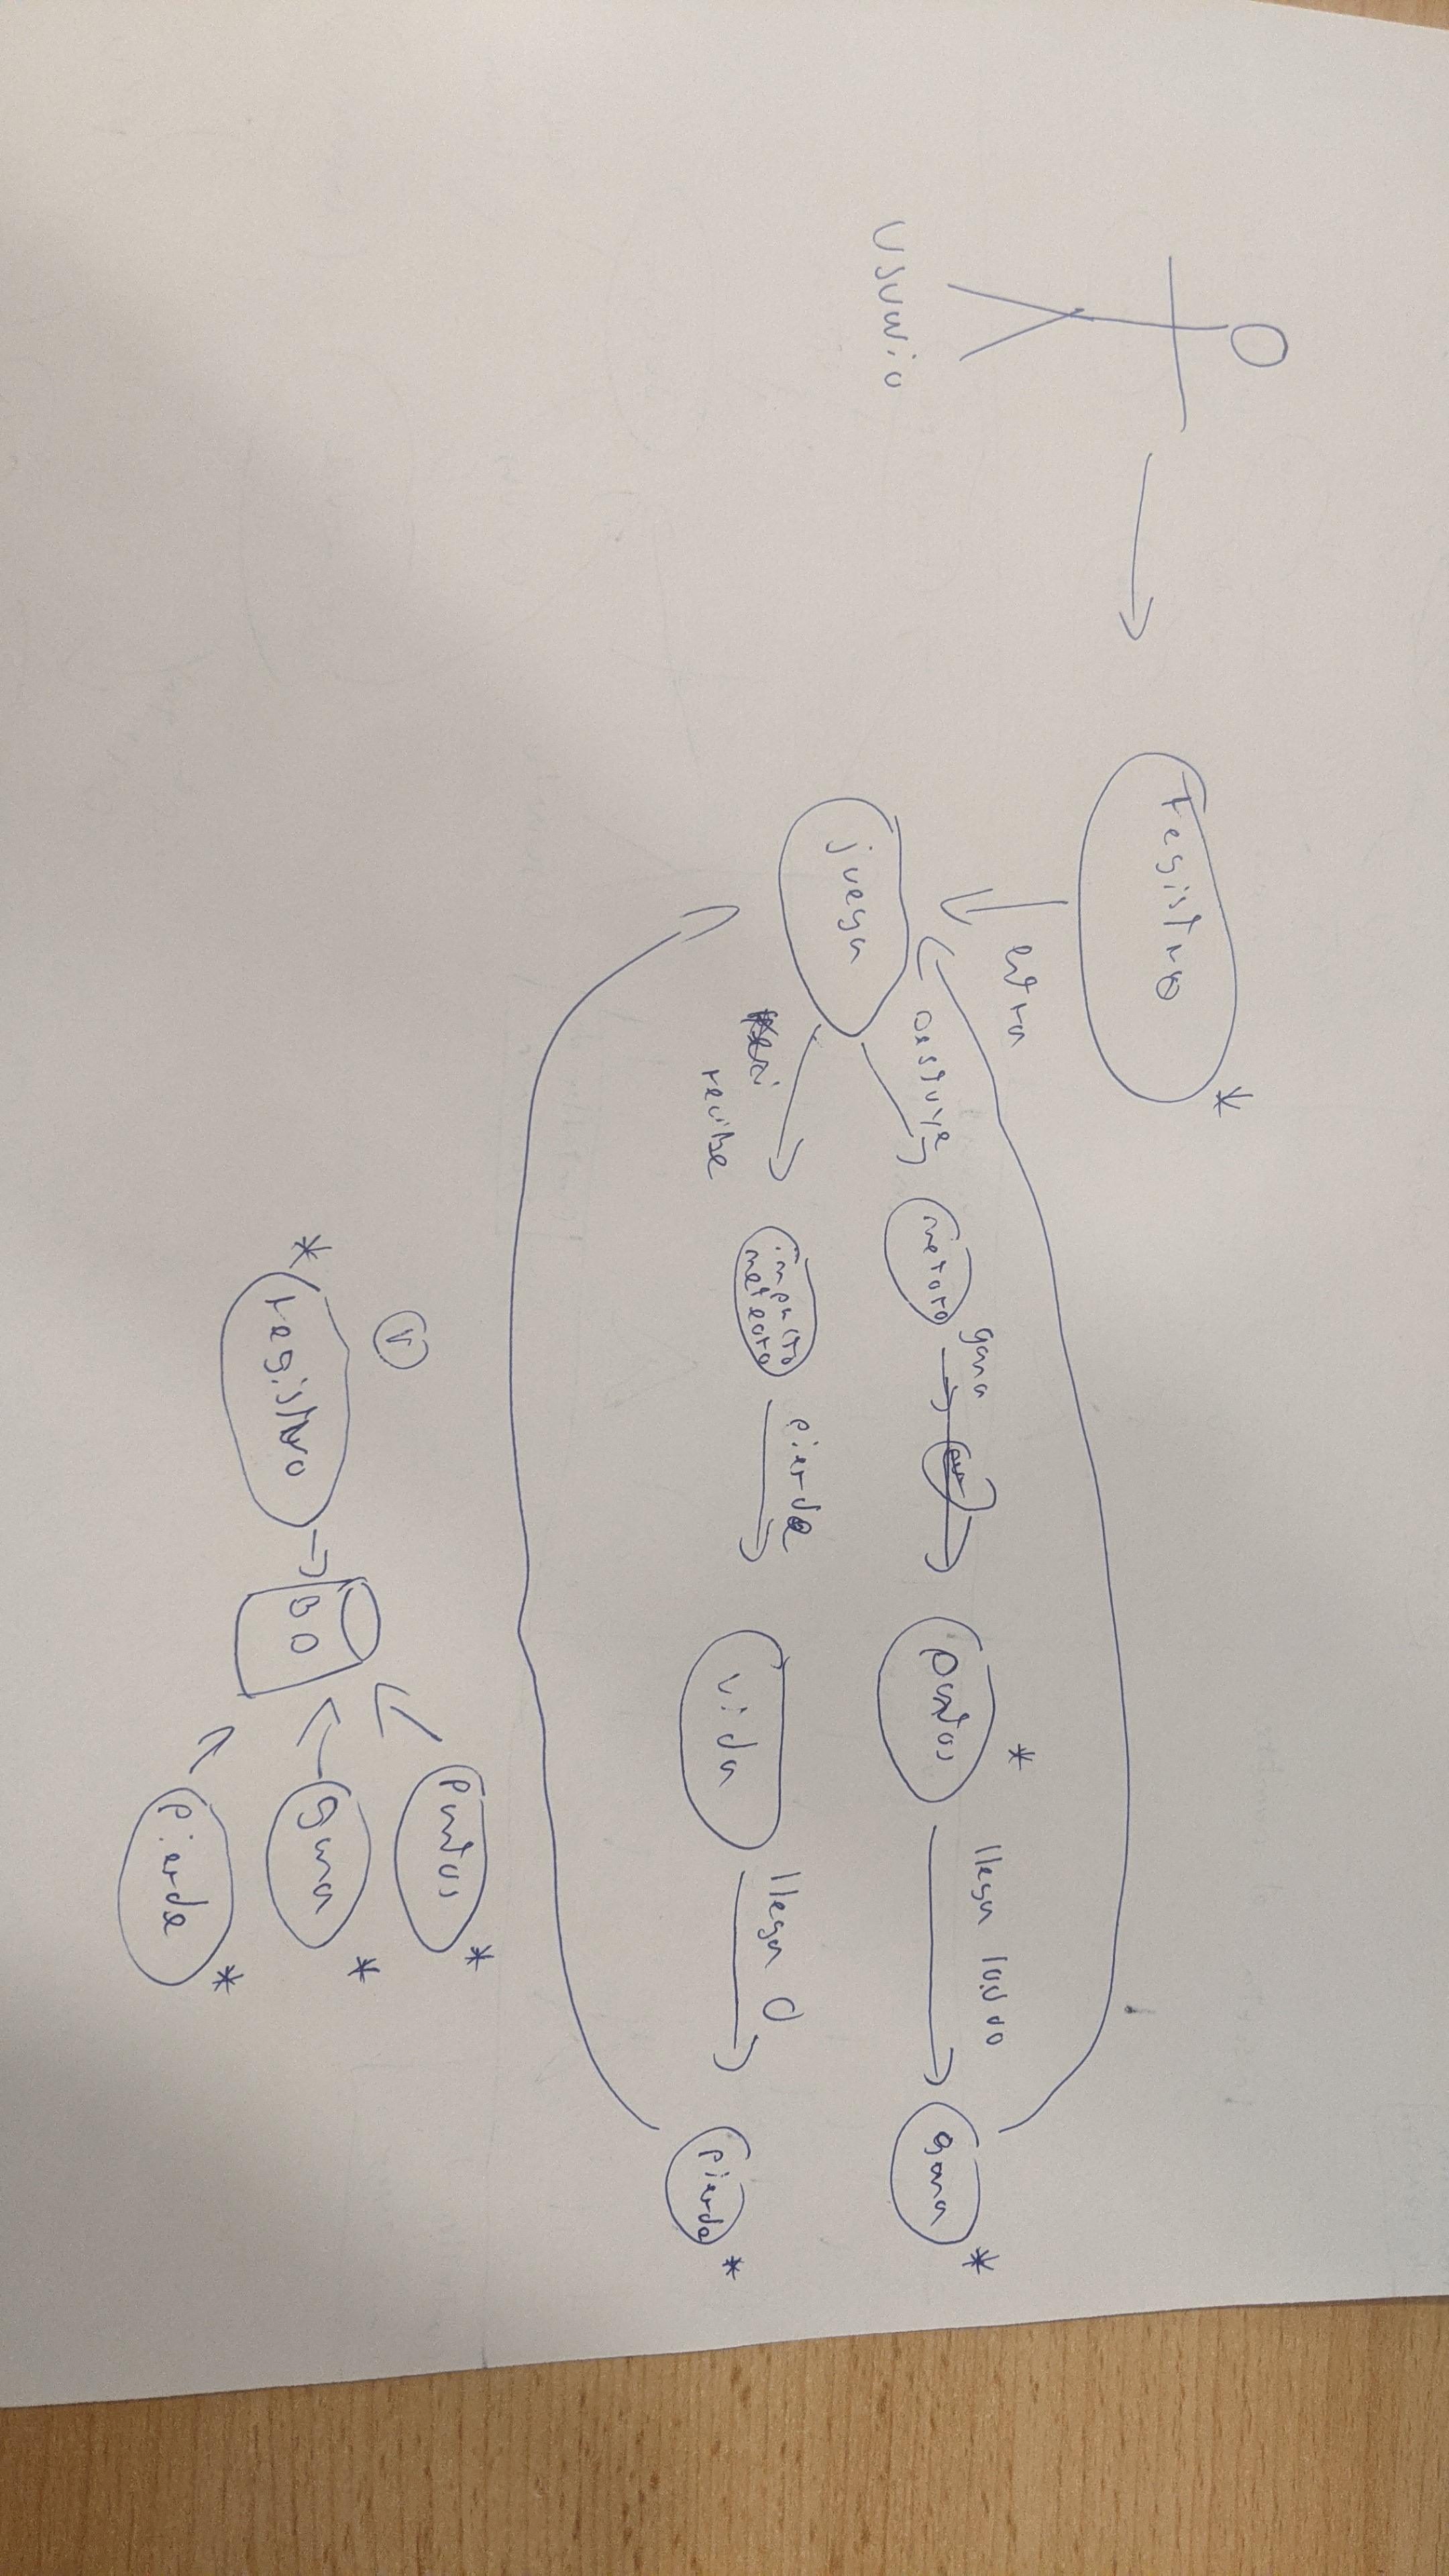 Usuario
registro *
entra
juega
Destruye
metoro
gana
puntos *
llega 10.000
gana *
recibe
impacto
meteoro
pierde
vida
llega 0
pierde *
* registro
BD
puntos *
gana *
pierde *